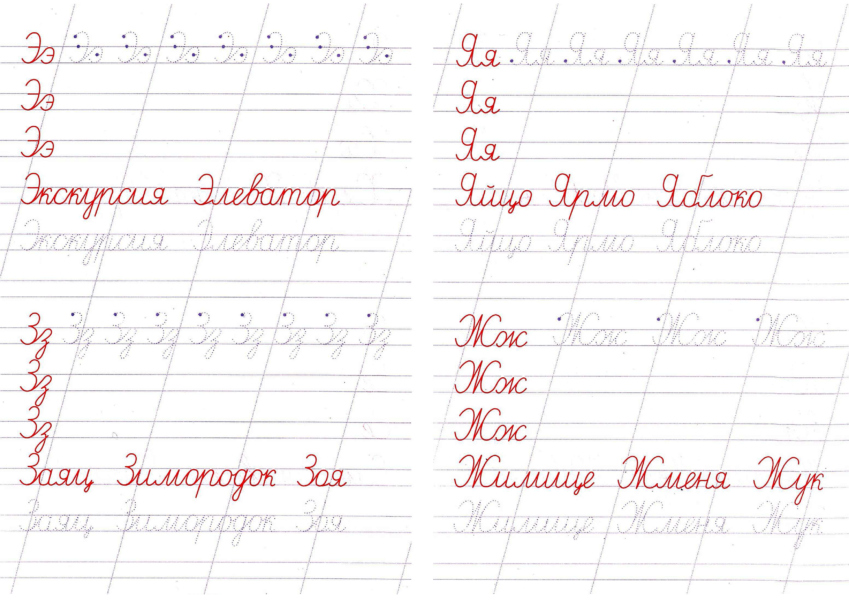 Ээ Ээ Ээ Ээ Ээ Ээ Ээ Ээ
Ээ
Ээ
Экскурсия Элеватор
Экскурсия Элеватор
Зз Зз Зз Зз Зз Зз Зз Зз
Зз
Зз
Заяц Зимородок Зоя
Заяц Зимородок Зоя
Яя Яя Яя Яя Яя Яя Яя
Яя
Яя
Яйцо Ярмо Яблоко
Яйцо Ярмо Яблоко
Жж Жж Жж Жж
Жж
Жж
Жилище Жменя Жук
Жилище Жменя Жук